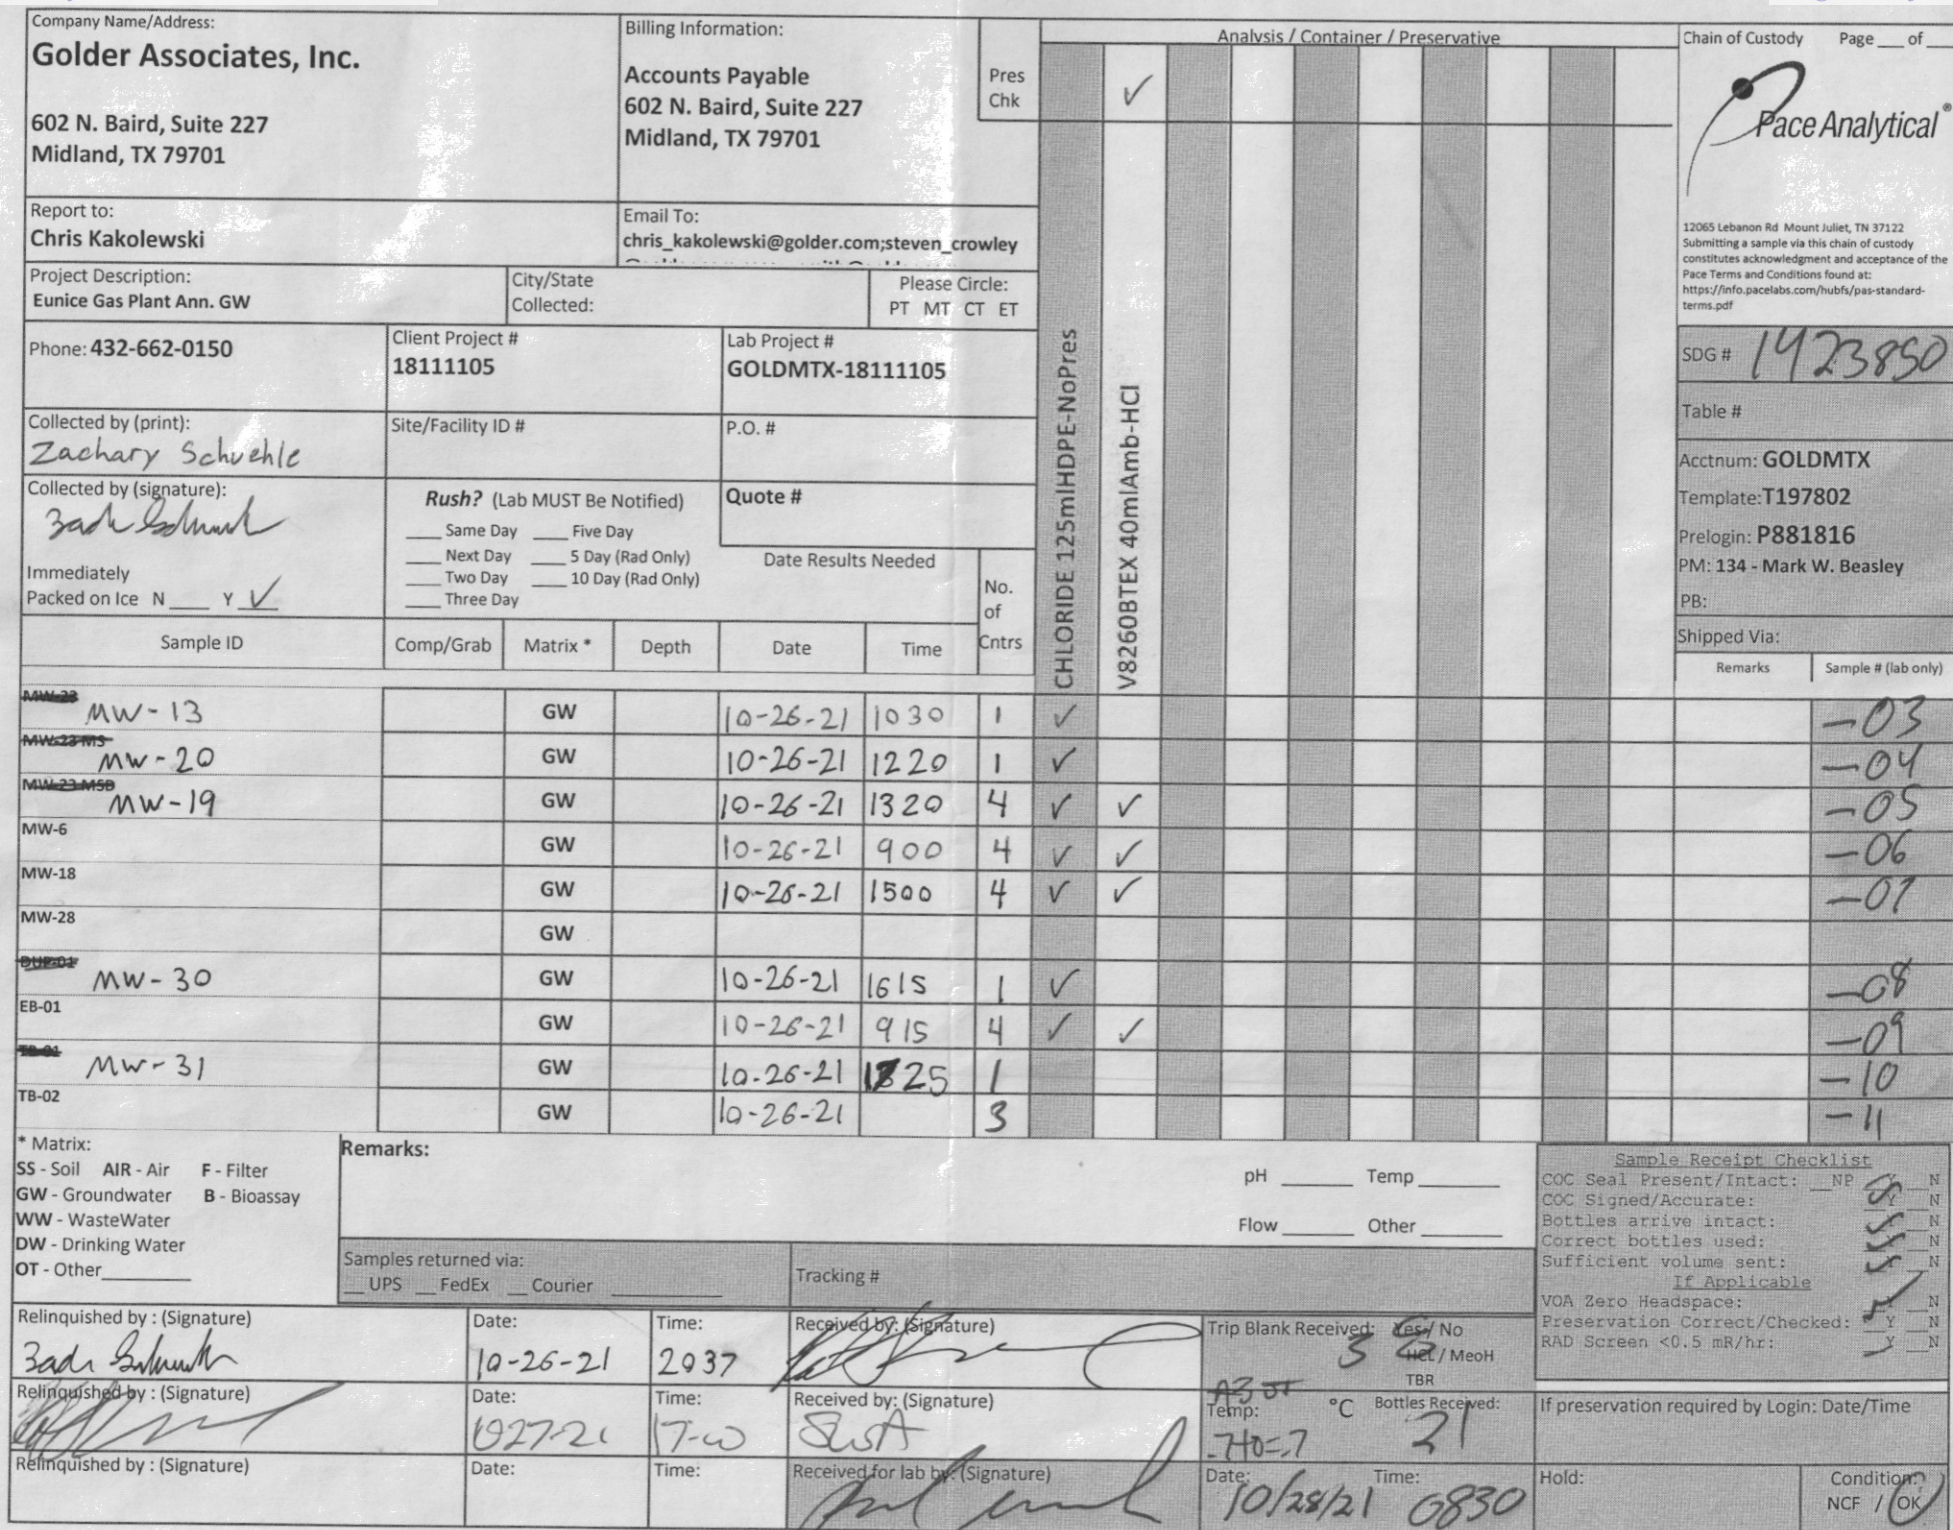 Company Name/Address:
Golder Associates, Inc.
602 N. Baird, Suite 227
Midland, TX 79701
Billing Information:
Accounts Payable
602 N. Baird, Suite 227
Midland, TX 79701
Pres
Chk
Analysis / Container / Preservative
✓
CHLORIDE 125mlHDPE-NoPres
V8260BTEX 40mlAmb-HCl
Chain of Custody Page ___ of
Pace Analytical®
12065 Lebanon Rd Mount Juliet, TN 37122
Submitting a sample via this chain of custody
constitutes acknowledgment and acceptance of the
Pace Terms and Conditions found at:
https://info.pacelabs.com/hubfs/pas-standard-
terms.pdf
Report to:
Chris Kakolewski
Email To:
chris_kakolewski@golder.com;steven_crowley
Project Description:
Eunice Gas Plant Ann. GW
City/State
Collected:
Please Circle:
PT MT CT ET
Phone: 432-662-0150
Client Project #
18111105
Lab Project #
GOLDMTX-18111105
SDG # 1423850
Table #
Acctnum: GOLDMTX
Template:T197802
Prelogin: P881816
PM: 134 - Mark W. Beasley
PB:
Shipped Via:
Collected by (print):
Zachary Schuehle
Site/Facility ID #
P.O. #
Collected by (signature):
Rush? (Lab MUST Be Notified)
___ Same Day ___ Five Day
___ Next Day ___ 5 Day (Rad Only)
___ Two Day ___ 10 Day (Rad Only)
___ Three Day
Quote #
Date Results Needed
Immediately
Packed on Ice N ___ Y ✓
No.
of
Cntrs
Sample ID Comp/Grab Matrix * Depth Date Time
Remarks Sample # (lab only)
MW-23 MW-13 GW 10-26-21 1030 1 ✓ -03
MW-23 MS MW-20 GW 10-26-21 1220 1 ✓ -04
MW-23 MSD MW-19 GW 10-26-21 1320 4 ✓ ✓ -05
MW-6 GW 10-26-21 900 4 ✓ ✓ -06
MW-18 GW 10-26-21 1500 4 ✓ ✓ -07
MW-28 GW
DUP-01 MW-30 GW 10-26-21 1615 1 ✓ -08
EB-01 GW 10-26-21 915 4 ✓ ✓ -09
TB-01 MW-31 GW 10-26-21 1725 1 -10
TB-02 GW 10-26-21 3 -11
* Matrix:
SS - Soil AIR - Air F - Filter
GW - Groundwater B - Bioassay
WW - WasteWater
DW - Drinking Water
OT - Other
Remarks:
pH ______ Temp ______
Flow ______ Other ______
Samples returned via:
__ UPS __ FedEx __ Courier
Tracking #
Sample Receipt Checklist
COC Seal Present/Intact: __NP Y __N
COC Signed/Accurate: Y __N
Bottles arrive intact: Y __N
Correct bottles used: Y __N
Sufficient volume sent: Y __N
If Applicable
VOA Zero Headspace: Y __N
Preservation Correct/Checked: Y __N
RAD Screen <0.5 mR/hr: Y __N
Relinquished by : (Signature)
Date:
10-26-21
Time:
2037
Received by: (Signature)
Trip Blank Received: Yes / No
3
HCL / MeoH
TBR
Relinquished by : (Signature)
Date:
Time:
Received by: (Signature)
Temp: °C
Bottles Received:
21
If preservation required by Login: Date/Time
Relinquished by : (Signature)
Date:
Time:
Received for lab by: (Signature)
Date:
10/28/21
Time:
0830
Hold:
Condition:
NCF / OK